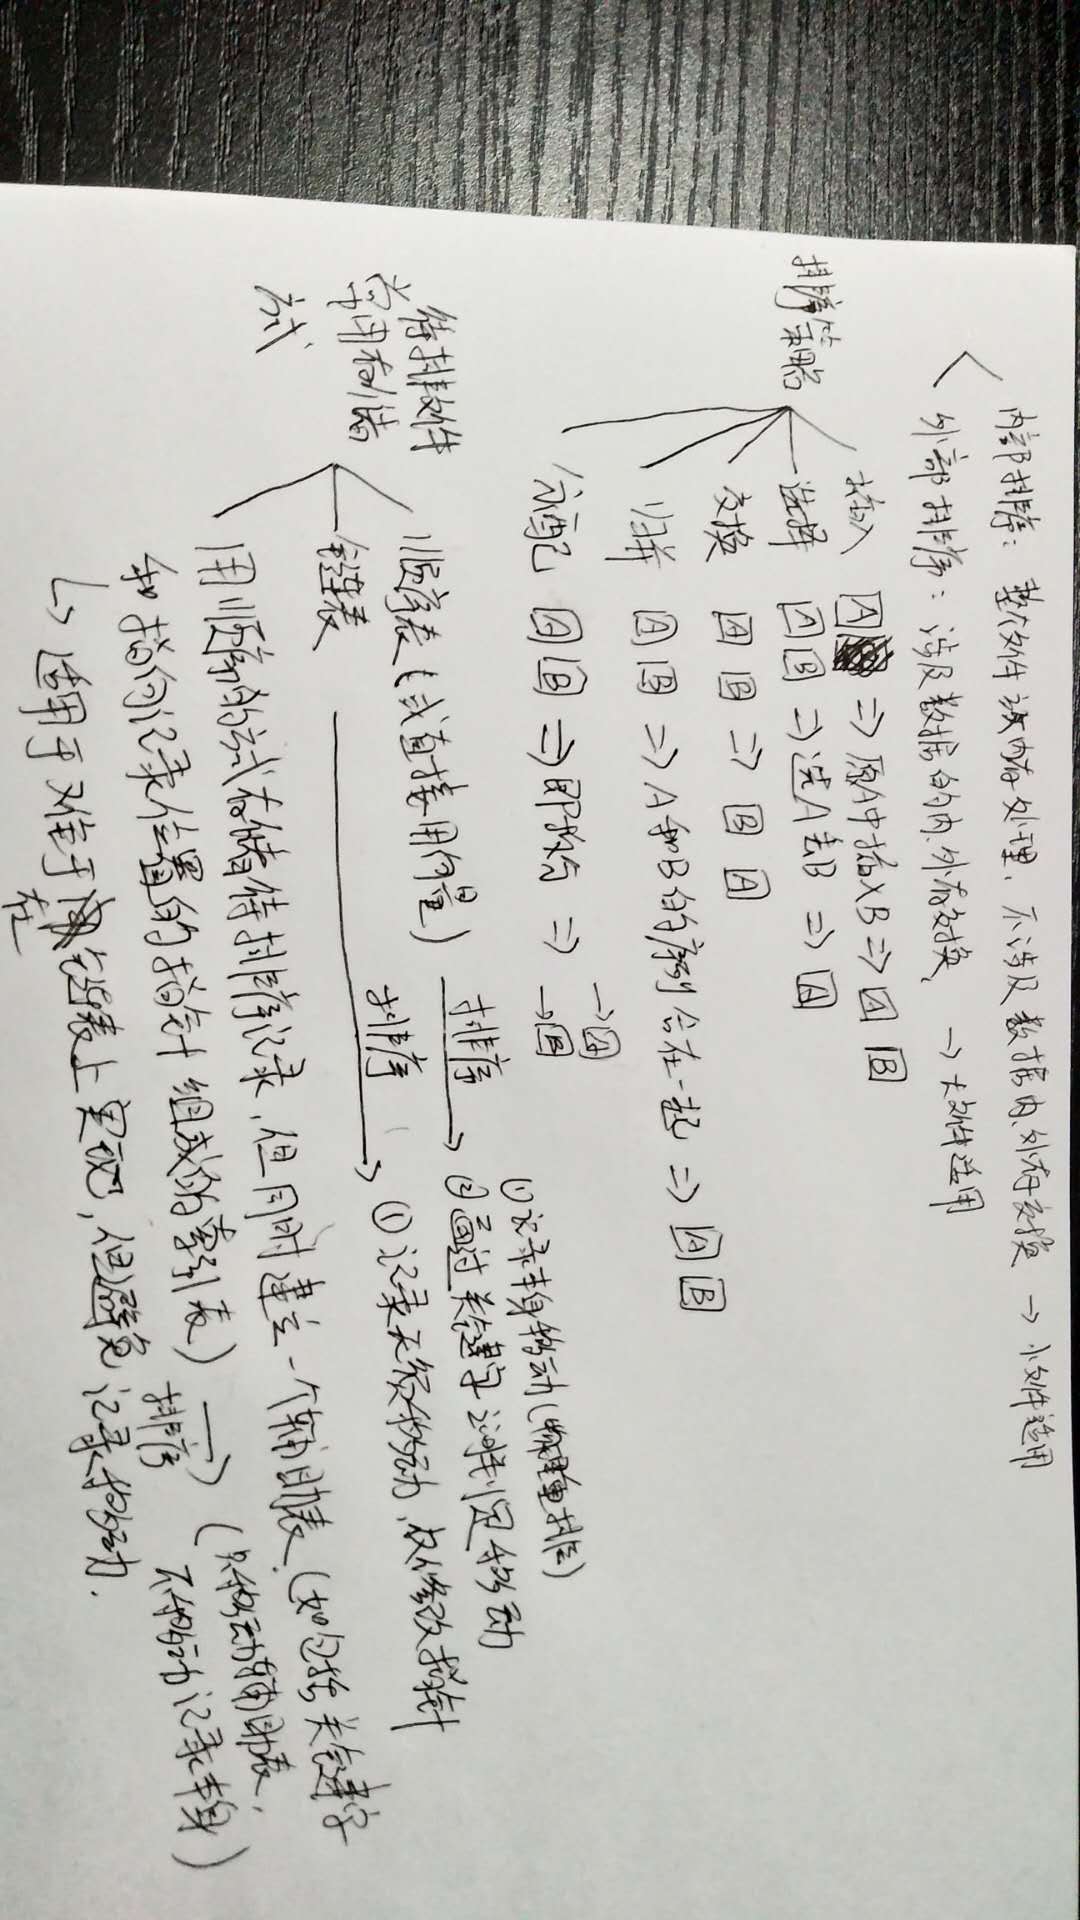 内部排序：整个文件放内存处理，不涉及数据内、外存交换 → 小文件适用
外部排序：涉及数据的内、外存交换， → 大文件适用
排序策略
插入 A ⇒ 原A中插入B ⇒ A B
选择 A B ⇒ 选A丢B ⇒ A
交换 A B ⇒ B A
归并 A B ⇒ A和B的序列合在一起 ⇒ A B
分配 A B ⇒ 即拆分 ⇒ → A
→ B
待排文件
常用存储
方式
顺序表（或直接用向量） 排序 ① 记录本身移动（物理重排）
② 通过关键字判定移动
链表 排序 ① 记录无须移动，仅修改指针
用顺序的方式存储待排序记录，但同时建立一个辅助表（如包括关键字
和指向记录位置的指针组成的索引表） → 排序 （只移动辅助表，
不移动记录本身）
↳ 适用于难于在链表上实现，但避免记录移动.